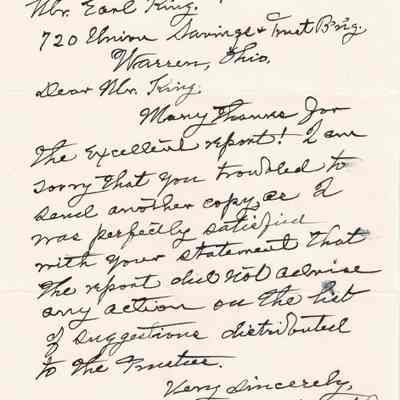 Mr. Earl King.
720 Union Savings & Trust B'n'g.
Warren, Ohio.
Dear Mr. King.
Many thanks for
the excellent report! I am
sorry that you troubled to
send another copy, as I
was perfectly satisfied
with your statement that
the report did not advise
any action on the list
of suggestions distributed
to the Trustees.
Very sincerely,